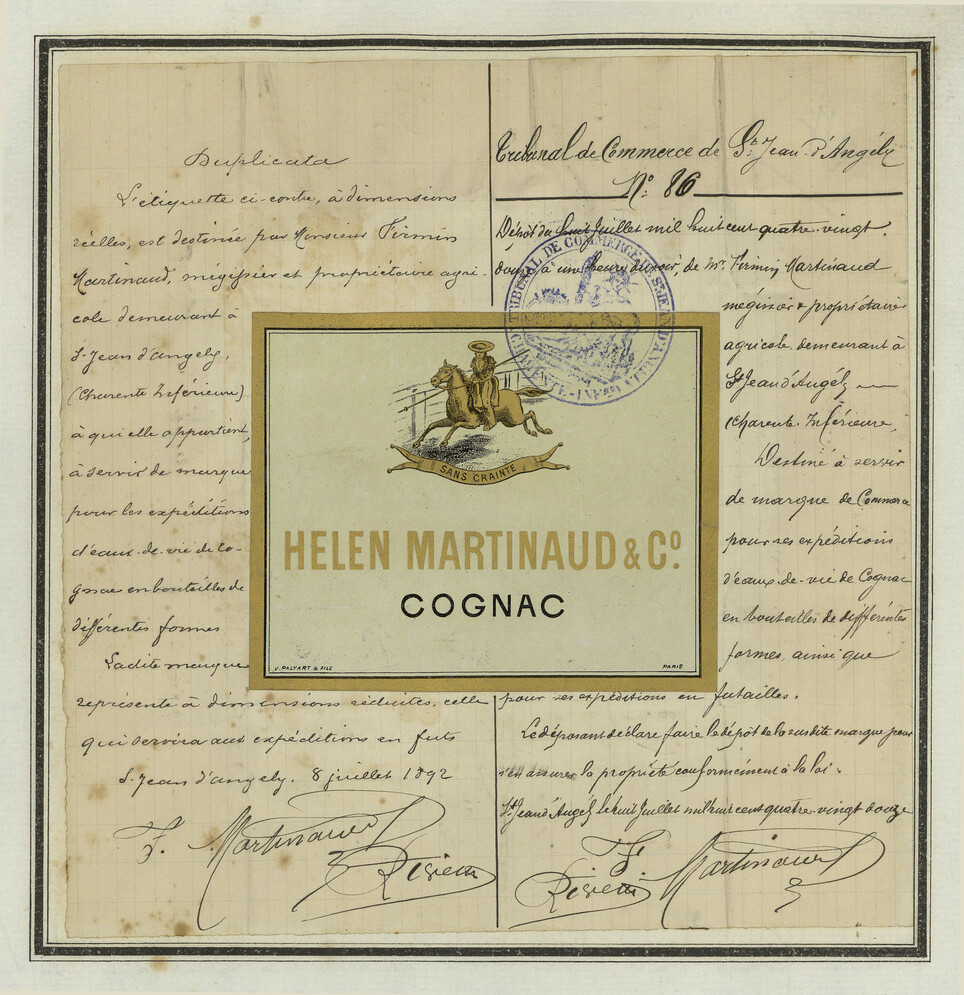 Duplicata
L'étiquette ci-contre, à dimensions
réelles, est destinée par Monsieur Firmin
Martinaud, mégissier et propriétaire agri-
cole demeurant à
St Jean d'angely,
(Charente Inférieure)
à qui elle appartient,
à servir de marque
pour les expéditions
d'eaux-de-vie de Co-
gnac en bouteilles de
différentes formes
Ladite marque
représente à dimensions réduites, celle
qui servira aux expéditions en futs
St Jean d'angely. 8 juillet 1892
F. Martinaud
Tribunal de Commerce de St Jean-d'Angély
No: 86
Dépôt du huit Juillet mil huit cent quatre-vingt
douze à une heure du soir, de Mr Firmin Martinaud
mégissier & propriétaire
agricole, demeurant à
St Jean d'Angély
(Charente-Inférieure,
Destiné à servir
de marque de Commerce
pour ses expéditions
d'eaux-de-vie de Cognac
en bouteilles de différentes
formes, ainsi que
pour ses expéditions en futailles.
Le déposant déclare faire le dépôt de la susdite marque pour
s'en assurer la propriété conformément à la loi.
St Jean d'Angély le huit Juillet mil huit cent quatre-vingt douze
F. Martinaud
TRIBUNAL DE COMMERCE DE ST JEAN D'ANGELY
CHARENTE-INFRE
SANS CRAINTE
HELEN MARTINAUD & Co.
COGNAC
V. PALYART & FILS
PARIS